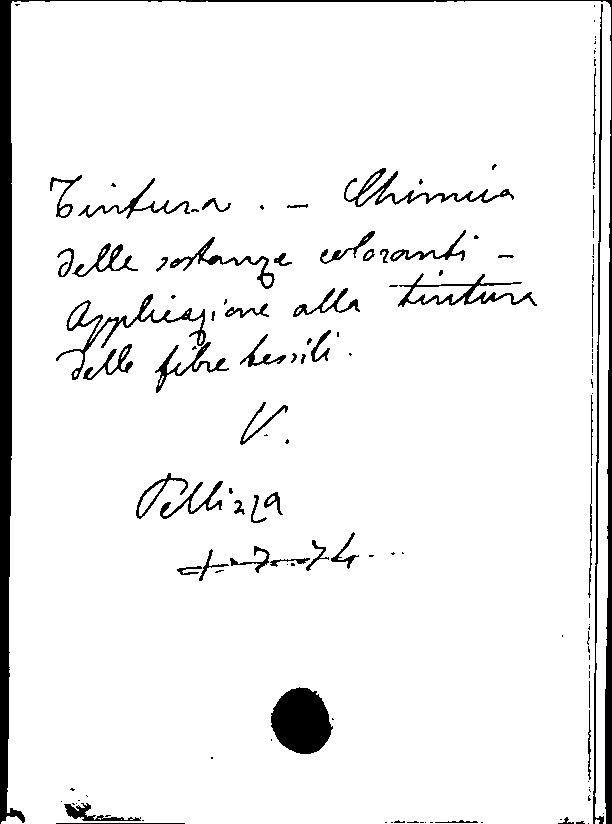 Tintura . - Chimica
delle sostanze coloranti -
Applicazione alla tintura
delle fibre tessili.
V.
Pellizza
1-7-74...